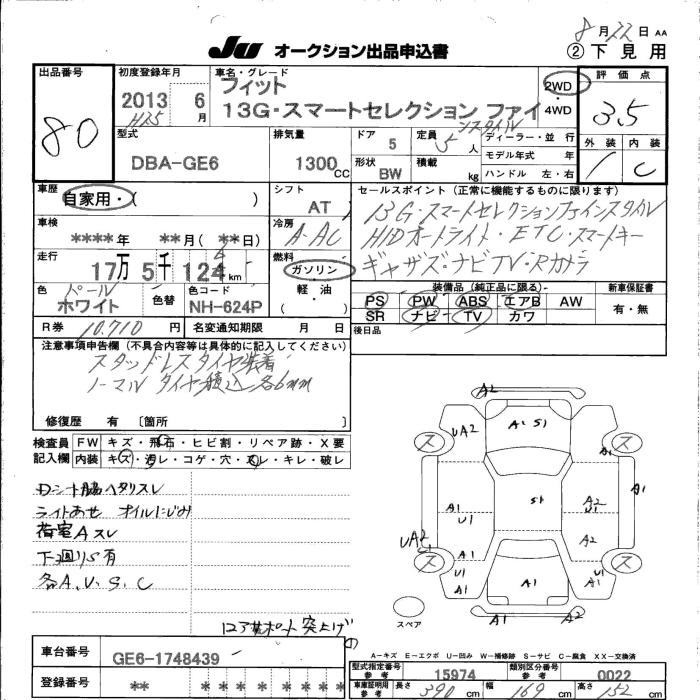 8月22日 AA
JU オークション出品申込書
②下見用
出品番号
80
初度登録年月
2013 6月
H25
車名・グレード
フィット
13G・スマートセレクション ファイ
ンスタイル
2WD
4WD
評価点
3.5
外装 内装
C
型式
DBA-GE6
排気量
1300 CC
ドア 5
定員 5人
形状 BW
積載 kg
ディーラー・並行
モデル年式 年
ハンドル 左・右
車歴
自家用・( )
シフト
AT
セールスポイント(正常に機能するものに限ります)
13G・スマートセレクションファインスタイル
HIDオートライト・ETC・スマートキー
ギャザズ・ナビTV・Rカメラ
車検
****年 **月(**日)
冷房
A-AC
走行
17万5千124km
燃料
ガソリン
軽・油
( )
色
パール
ホワイト
色替
色コード
NH-624P
装備品(純正品に限る)
PS PW ABS エアB AW
SR ナビ TV カワ
新車保証書
有・無
R券 10,710円
名変通知期限 月 日
後日品
注意事項申告欄(不具合内容等は具体的に記入してください)
スタッドレスタイヤ装着
ノーマルタイヤ積込 各6mm
修復歴 有 〔箇所 〕
検査員
記入欄
FW キズ・飛石・ヒビ割・リペア跡・X要
内装 キズ・汚レ・コゲ・穴・スレ・キレ・破レ
Dシート脇ヘタリスレ
ライトあせ オイルにじみ
荷室Aスレ
下廻りS有
各A.U.S.C
コアサポート突上げ
A2
UA2
A1 S1
A1
ス ス
A1
U1
S1
A2
U1
A1
UA2
A2
ス ス
A1
U1
A1
A1
U1
A1
A1
A2
スペア
A-キズ E-エクボ U-凹み W-補修跡 S-サビ C-腐食 XX-交換済
車台番号
GE6-1748439
登録番号
** * * * * * * *
型式指定番号
参考
15974
類別区分番号
参考
0022
車庫証明用
参考
長さ 390 cm
幅 169 cm
高さ 152 cm